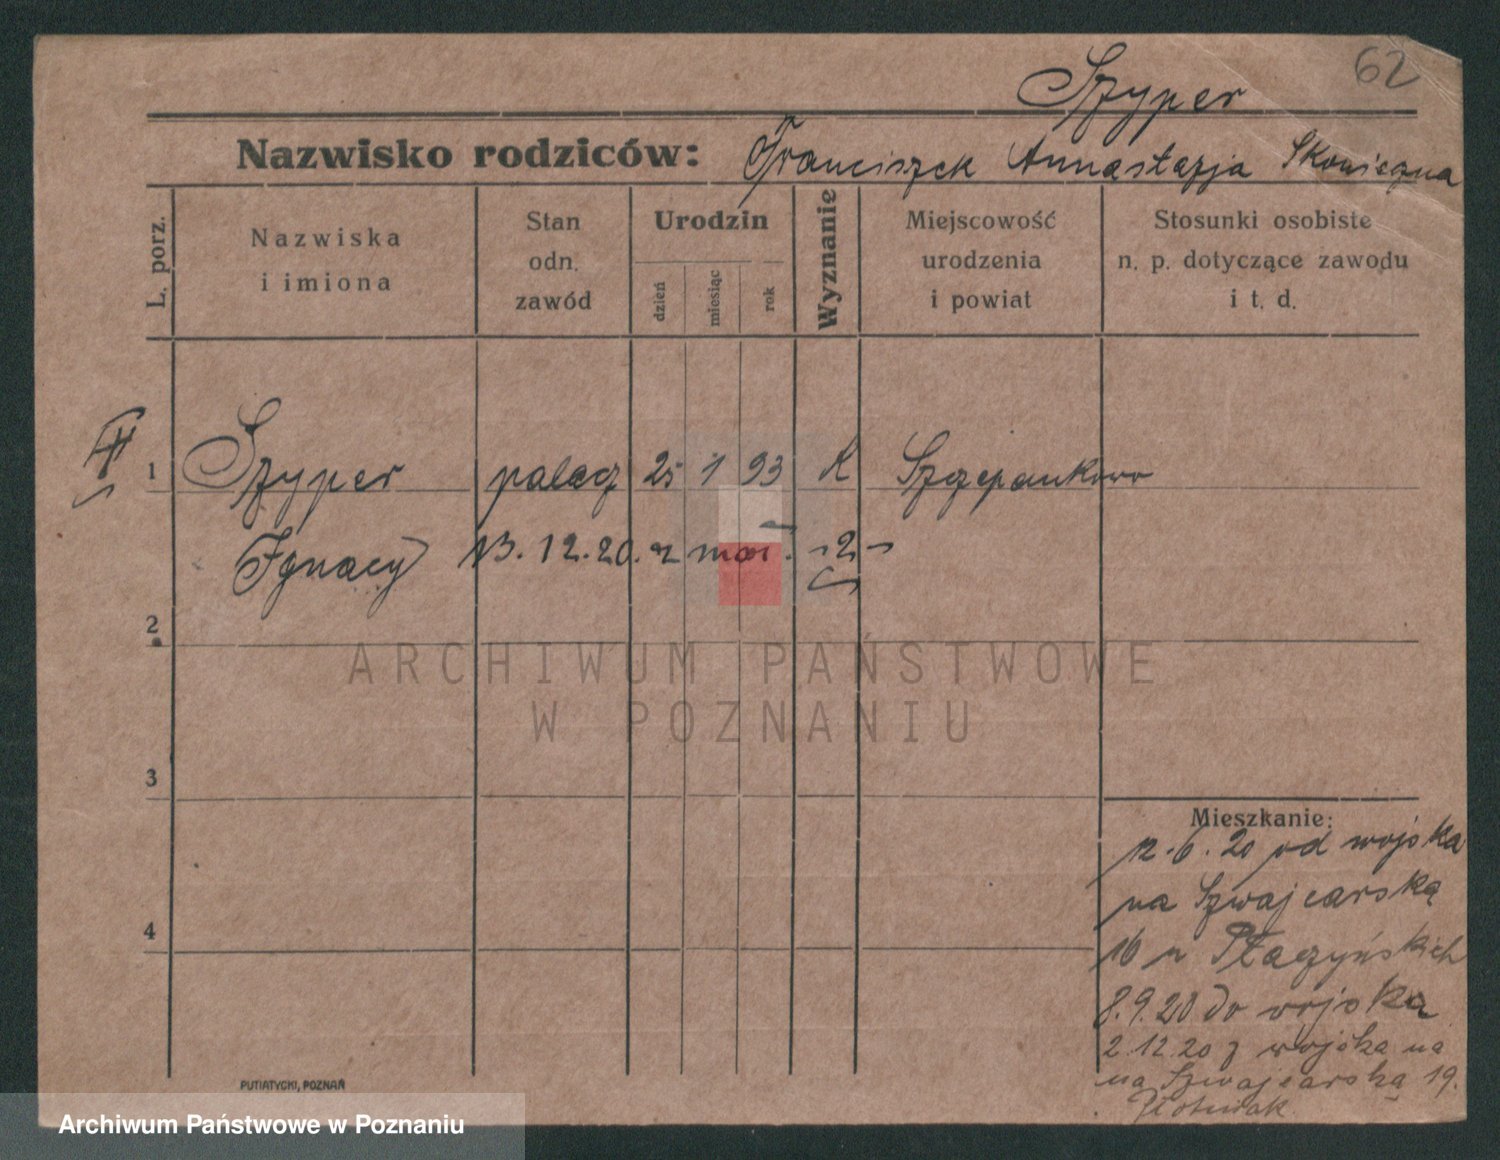 62
Szyper
Nazwisko rodziców: Franciszek Annastazja Skowieczna
L. porz.
Nazwiska i imiona
Stan odn. zawód
Urodzin
dzień
miesiąc
rok
Wyznanie
Miejscowość urodzenia i powiat
Stosunki osobiste n. p. dotyczące zawodu i t. d.
1 Szyper palacz 25 1 93 K Szczepankowo
Ignacy 13.12.20. -2-
2
3
4
ARCHIWUM PAŃSTWOWE
W POZNANIU
Mieszkanie:
12.6.20 od wojska
na Szwajcarską
16 u Płaczyńskich
8.9.20 do wojska
2.12.20 z wojska na
na Szwajcarską 19.
PUTIATYCKI, POZNAŃ
Archiwum Państwowe w Poznaniu